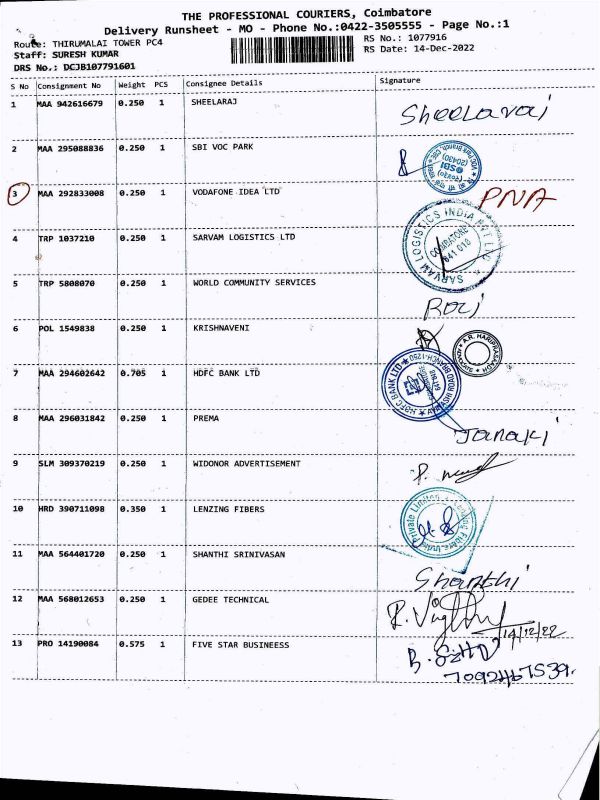 THE PROFESSIONAL COURIERS, Coimbatore
Delivery Runsheet - MO - Phone No.:0422-3505555 - Page No.:1
Route: THIRUMALAI TOWER PC4 RS No.: 1077916
Staff: SURESH KUMAR RS Date: 14-Dec-2022
DRS No.: DCJB107791601
S No Consignment No Weight PCS Consignee Details Signature
1 MAA 942616679 0.250 1 SHEELARAJ Sheelaraj
2 MAA 295088836 0.250 1 SBI VOC PARK
3 MAA 292833008 0.250 1 VODAFONE IDEA LTD PNA
4 TRP 1037210 0.250 1 SARVAM LOGISTICS LTD SARVAM LOGISTICS INDIA PVT LTD COIMBATORE 641 018
5 TRP 5808070 0.250 1 WORLD COMMUNITY SERVICES Roji
6 POL 1549838 0.250 1 KRISHNAVENI A.R. HARIPRASADH ADVOCATE
7 MAA 294602642 0.705 1 HDFC BANK LTD HDFC BANK LTD AVINASHI ROAD BRANCH-1250
8 MAA 296031842 0.250 1 PREMA Janaki
9 SLM 309370219 0.250 1 WIDONOR ADVERTISEMENT
10 HRD 390711098 0.350 1 LENZING FIBERS Lenzing Fibers India Private Limited
11 MAA 564401720 0.250 1 SHANTHI SRINIVASAN Shanthi
12 MAA 568012653 0.250 1 GEDEE TECHNICAL 14/12/22
13 PRO 14190084 0.575 1 FIVE STAR BUSINEESS